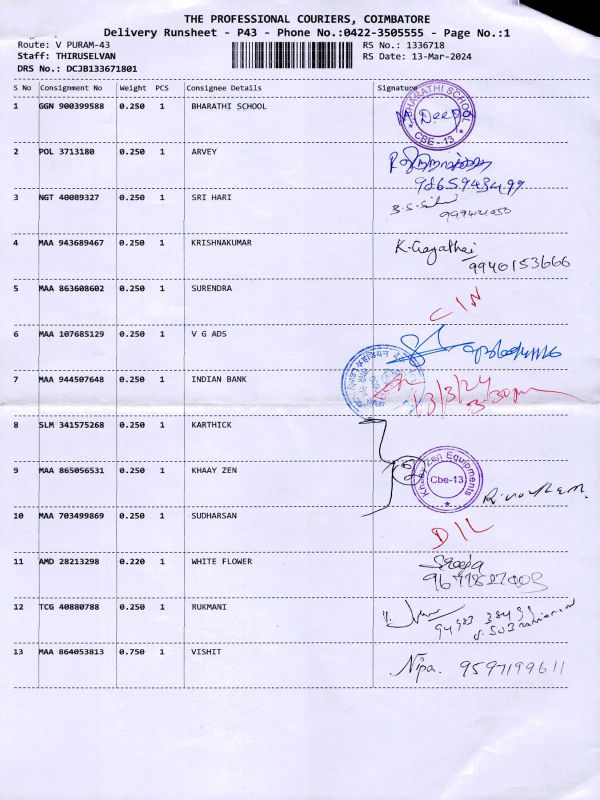 THE PROFESSIONAL COURIERS, COIMBATORE
Delivery Runsheet - P43 - Phone No.:0422-3505555 - Page No.:1
Route: V PURAM-43 RS No.: 1336718
Staff: THIRUSELVAN RS Date: 13-Mar-2024
DRS No.: DCJB133671801
S No Consignment No Weight PCS Consignee Details Signature
BHARATHI SCHOOL
1 GGN 900399588 0.250 1 BHARATHI SCHOOL
Deepa
CBE - 13
2 POL 3713180 0.250 1 ARVEY
9865943499
3 NGT 40089327 0.250 1 SRI HARI
4 MAA 943689467 0.250 1 KRISHNAKUMAR K-Gayathri
9940153666
5 MAA 863608602 0.250 1 SURENDRA
C/N
6 MAA 107685129 0.250 1 V G ADS
7 MAA 944507648 0.250 1 INDIAN BANK 13/3/24
3.30pm
8 SLM 341575268 0.250 1 KARTHICK
Khaay Zen Equipments
9 MAA 865056531 0.250 1 KHAAY ZEN Cbe-13
10 MAA 703499869 0.250 1 SUDHARSAN
D/L
11 AMD 28213298 0.220 1 WHITE FLOWER
12 TCG 40880788 0.250 1 RUKMANI
13 MAA 864053813 0.750 1 VISHIT Nipa. 9597199611